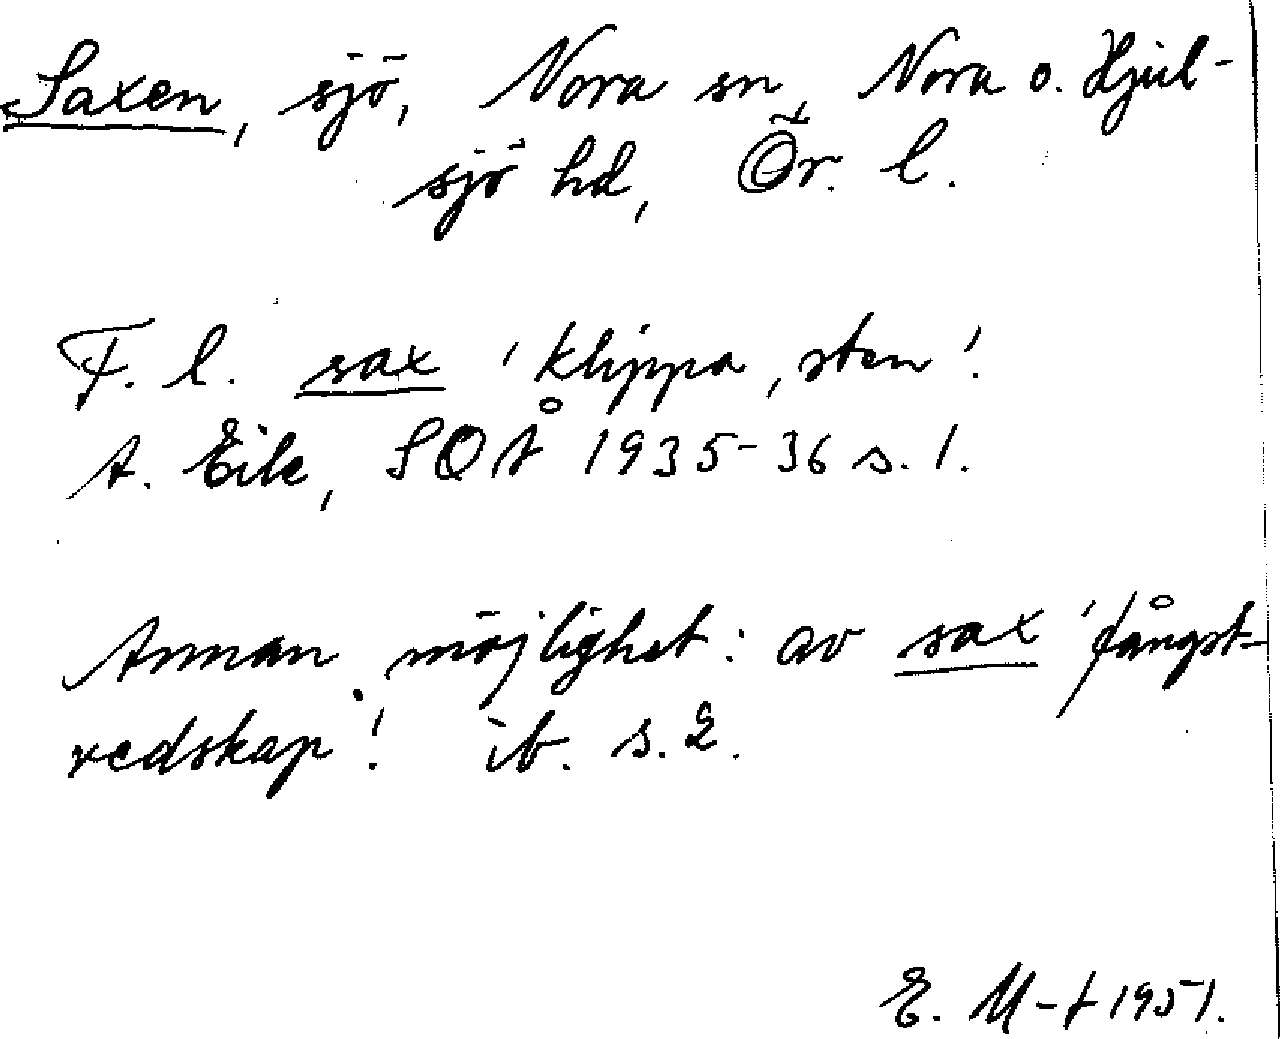 Saxen, sjö, Nora sn, Nora o. Hjul-
sjö hd, Ör. l.
F. l. sax 'klippa, sten'.
A. Eik, SOÅ 1935-36 s. 1.
Annan möjlighet: av sax 'fångst-
redskap'. ib. s. 2.
E. M-t 1951.